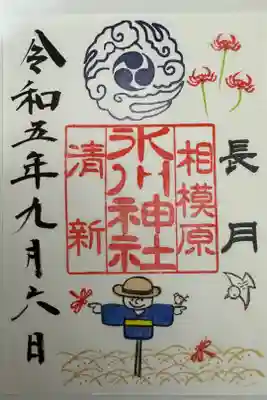 長月
相模原
氷川神社
清新
令和五年九月六日